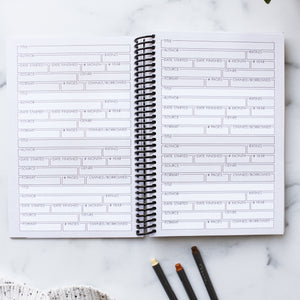 TITLE
AUTHOR RATING
DATE STARTED DATE FINISHED # MONTH # YEAR
SOURCE GENRE
FORMAT # PAGES OWNED/BORROWED
TITLE
AUTHOR RATING
DATE STARTED DATE FINISHED # MONTH # YEAR
SOURCE GENRE
FORMAT # PAGES OWNED/BORROWED
TITLE
AUTHOR RATING
DATE STARTED DATE FINISHED # MONTH # YEAR
SOURCE GENRE
FORMAT # PAGES OWNED/BORROWED
TITLE
AUTHOR RATING
DATE STARTED DATE FINISHED # MONTH # YEAR
SOURCE GENRE
FORMAT # PAGES OWNED/BORROWED
TITLE
AUTHOR RATING
DATE STARTED DATE FINISHED # MONTH # YEAR
SOURCE GENRE
FORMAT # PAGES OWNED/BORROWED
TITLE
AUTHOR RATING
DATE STARTED DATE FINISHED # MONTH # YEAR
SOURCE GENRE
FORMAT # PAGES OWNED/BORROWED
TITLE
AUTHOR RATING
DATE STARTED DATE FINISHED # MONTH # YEAR
SOURCE GENRE
FORMAT # PAGES OWNED/BORROWED
TITLE
AUTHOR RATING
DATE STARTED DATE FINISHED # MONTH # YEAR
SOURCE GENRE
FORMAT # PAGES OWNED/BORROWED